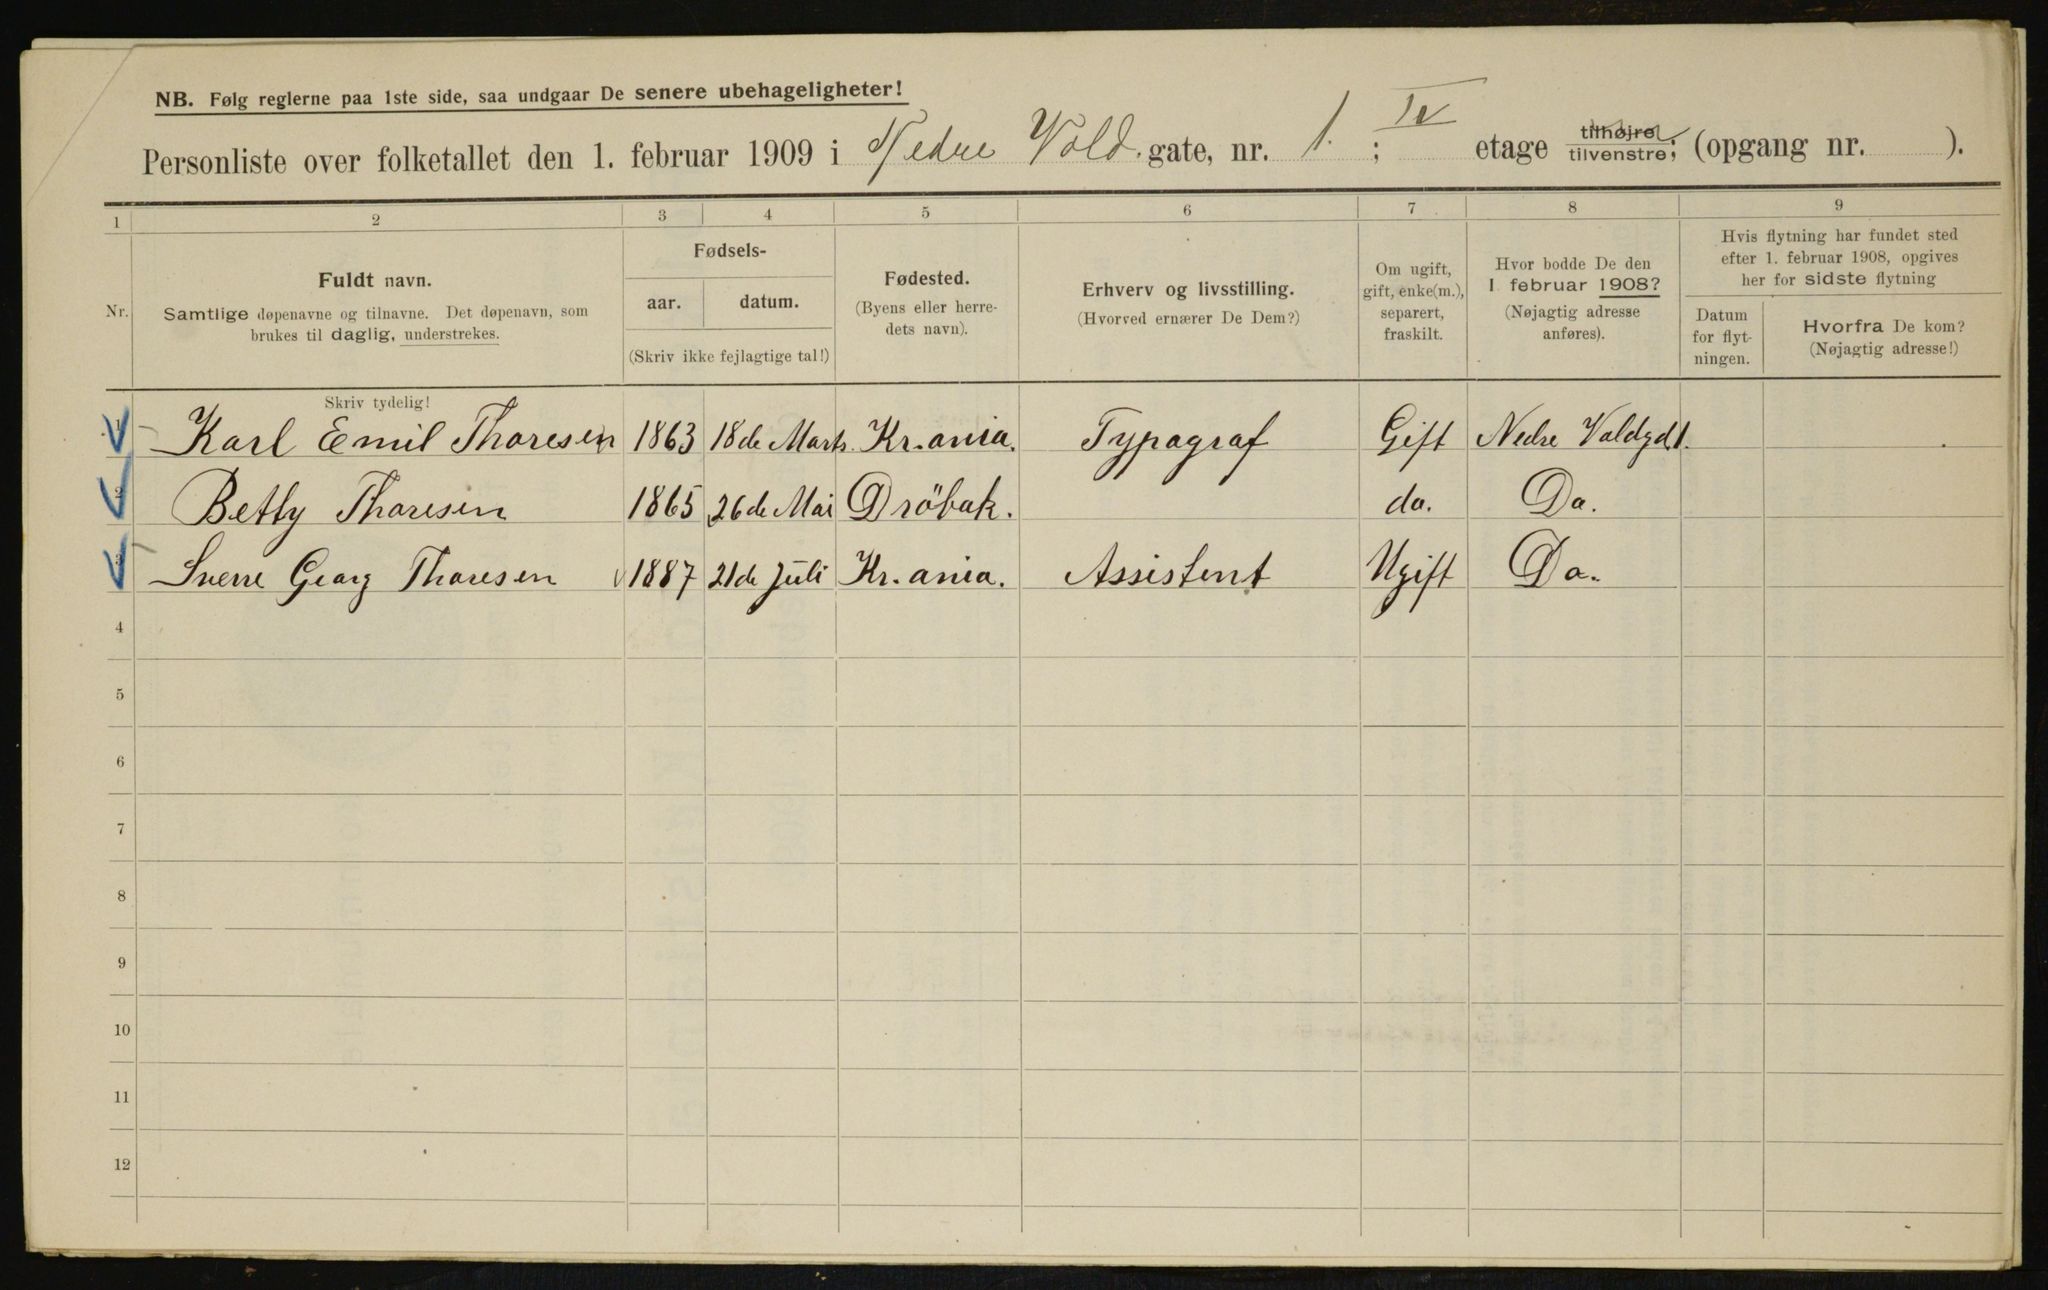 NB. Følg reglerne paa 1ste side, saa undgaar De senere ubehageligheter!
Personliste over folketallet den 1. februar 1909 i Nedre Vold. gate, nr. 1. ; IV etage tilhøjre tilvenstre; (opgang nr. ).
1 2 3 4 5 6 7 8 9
Nr.
Fuldt navn.
Samtlige døpenavne og tilnavne. Det døpenavn, som
brukes til daglig, understrekes.
Fødsels-
aar. datum.
(Skriv ikke fejlagtige tal!)
Fødested.
(Byens eller herre-
dets navn).
Erhverv og livsstilling.
(Hvorved ernærer De Dem?)
Om ugift,
gift, enke(m.),
separert,
fraskilt.
Hvor bodde De den
1 februar 1908?
(Nøjagtig adresse
anføres).
Hvis flytning har fundet sted
efter 1. februar 1908, opgives
her for sidste flytning
Datum
for flyt-
ningen.
Hvorfra De kom?
(Nøjagtig adresse!)
Skriv tydelig!
1 Karl Emil Thoresen 1863 18de Marts. Kr.ania. Typograf Gift Nedre Voldgd1.
2 Betty Thoresen 1865 26de Mai Dröbak. do. Do.
3 Sverre Georg Thoresen 1887 21de Juli Kr.ania. Assistent Ugift Do.
4
5
6
7
8
9
10
11
12